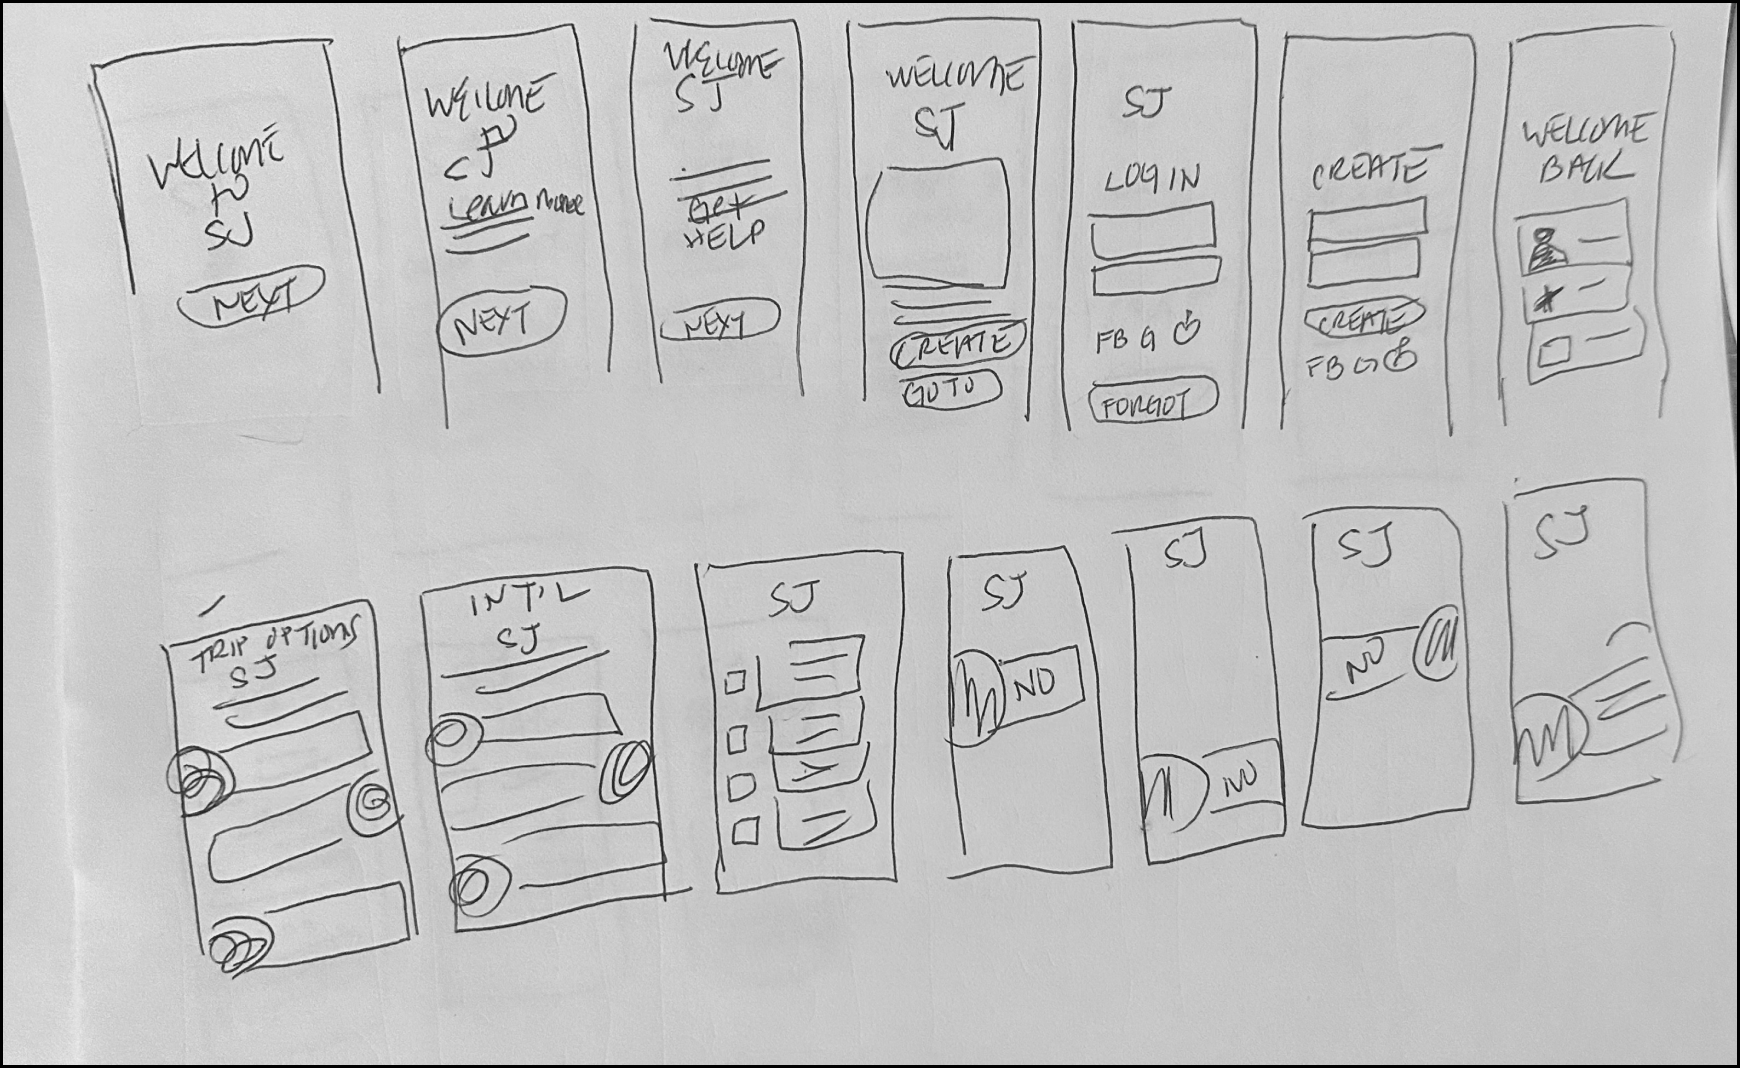 WELCOME
TO
SJ
NEXT
WELCOME
TO
SJ
Learn more
NEXT
WELCOME
SJ
Get
HELP
NEXT
WELCOME
SJ
CREATE
GO TO
SJ
LOG IN
FB G
FORGOT
CREATE
CREATE
FB G
WELCOME
BACK
TRIP OPTIONS
SJ
INT'L
SJ
SJ
SJ
NO
SJ
NO
SJ
NO
SJ